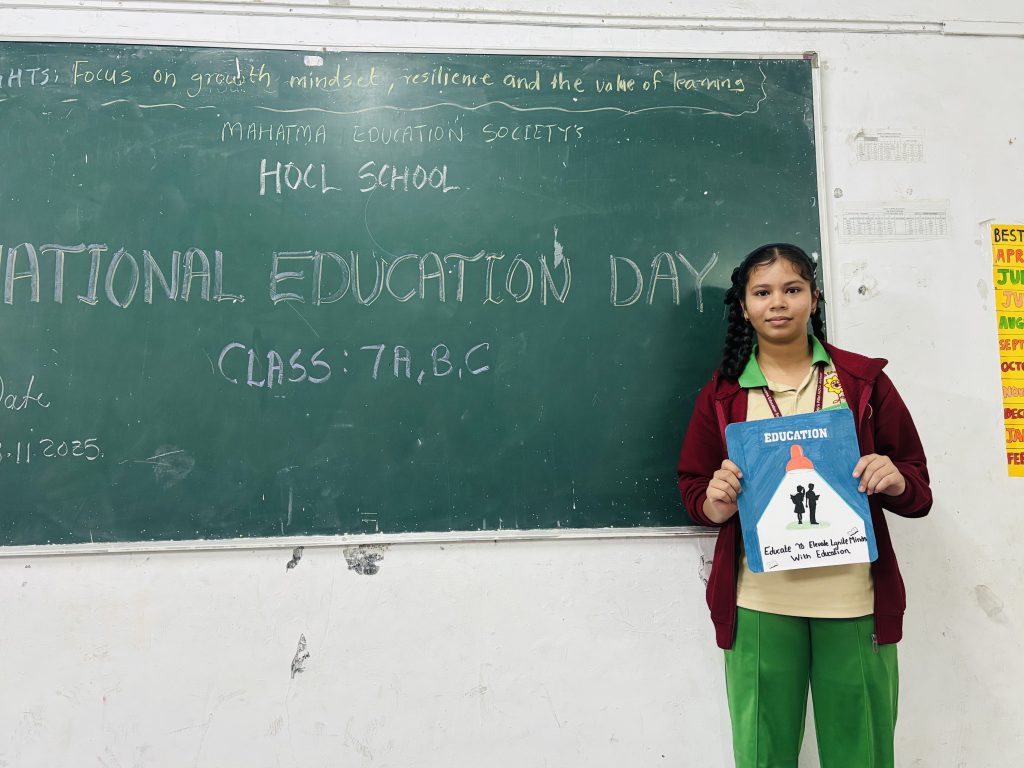 HTS: Focus on growth mindset, resilience and the value of learning
MAHATMA EDUCATION SOCIETY'S
HOCL SCHOOL
NATIONAL EDUCATION DAY
CLASS: 7A,B,C
Date
.11.2025.
EDUCATION
Educate To Elevate Ignite Minds
With Education
BEST
APR
JU
JU
AUG
SEPT
OCTO
NOV
DEC
JAN
FEB